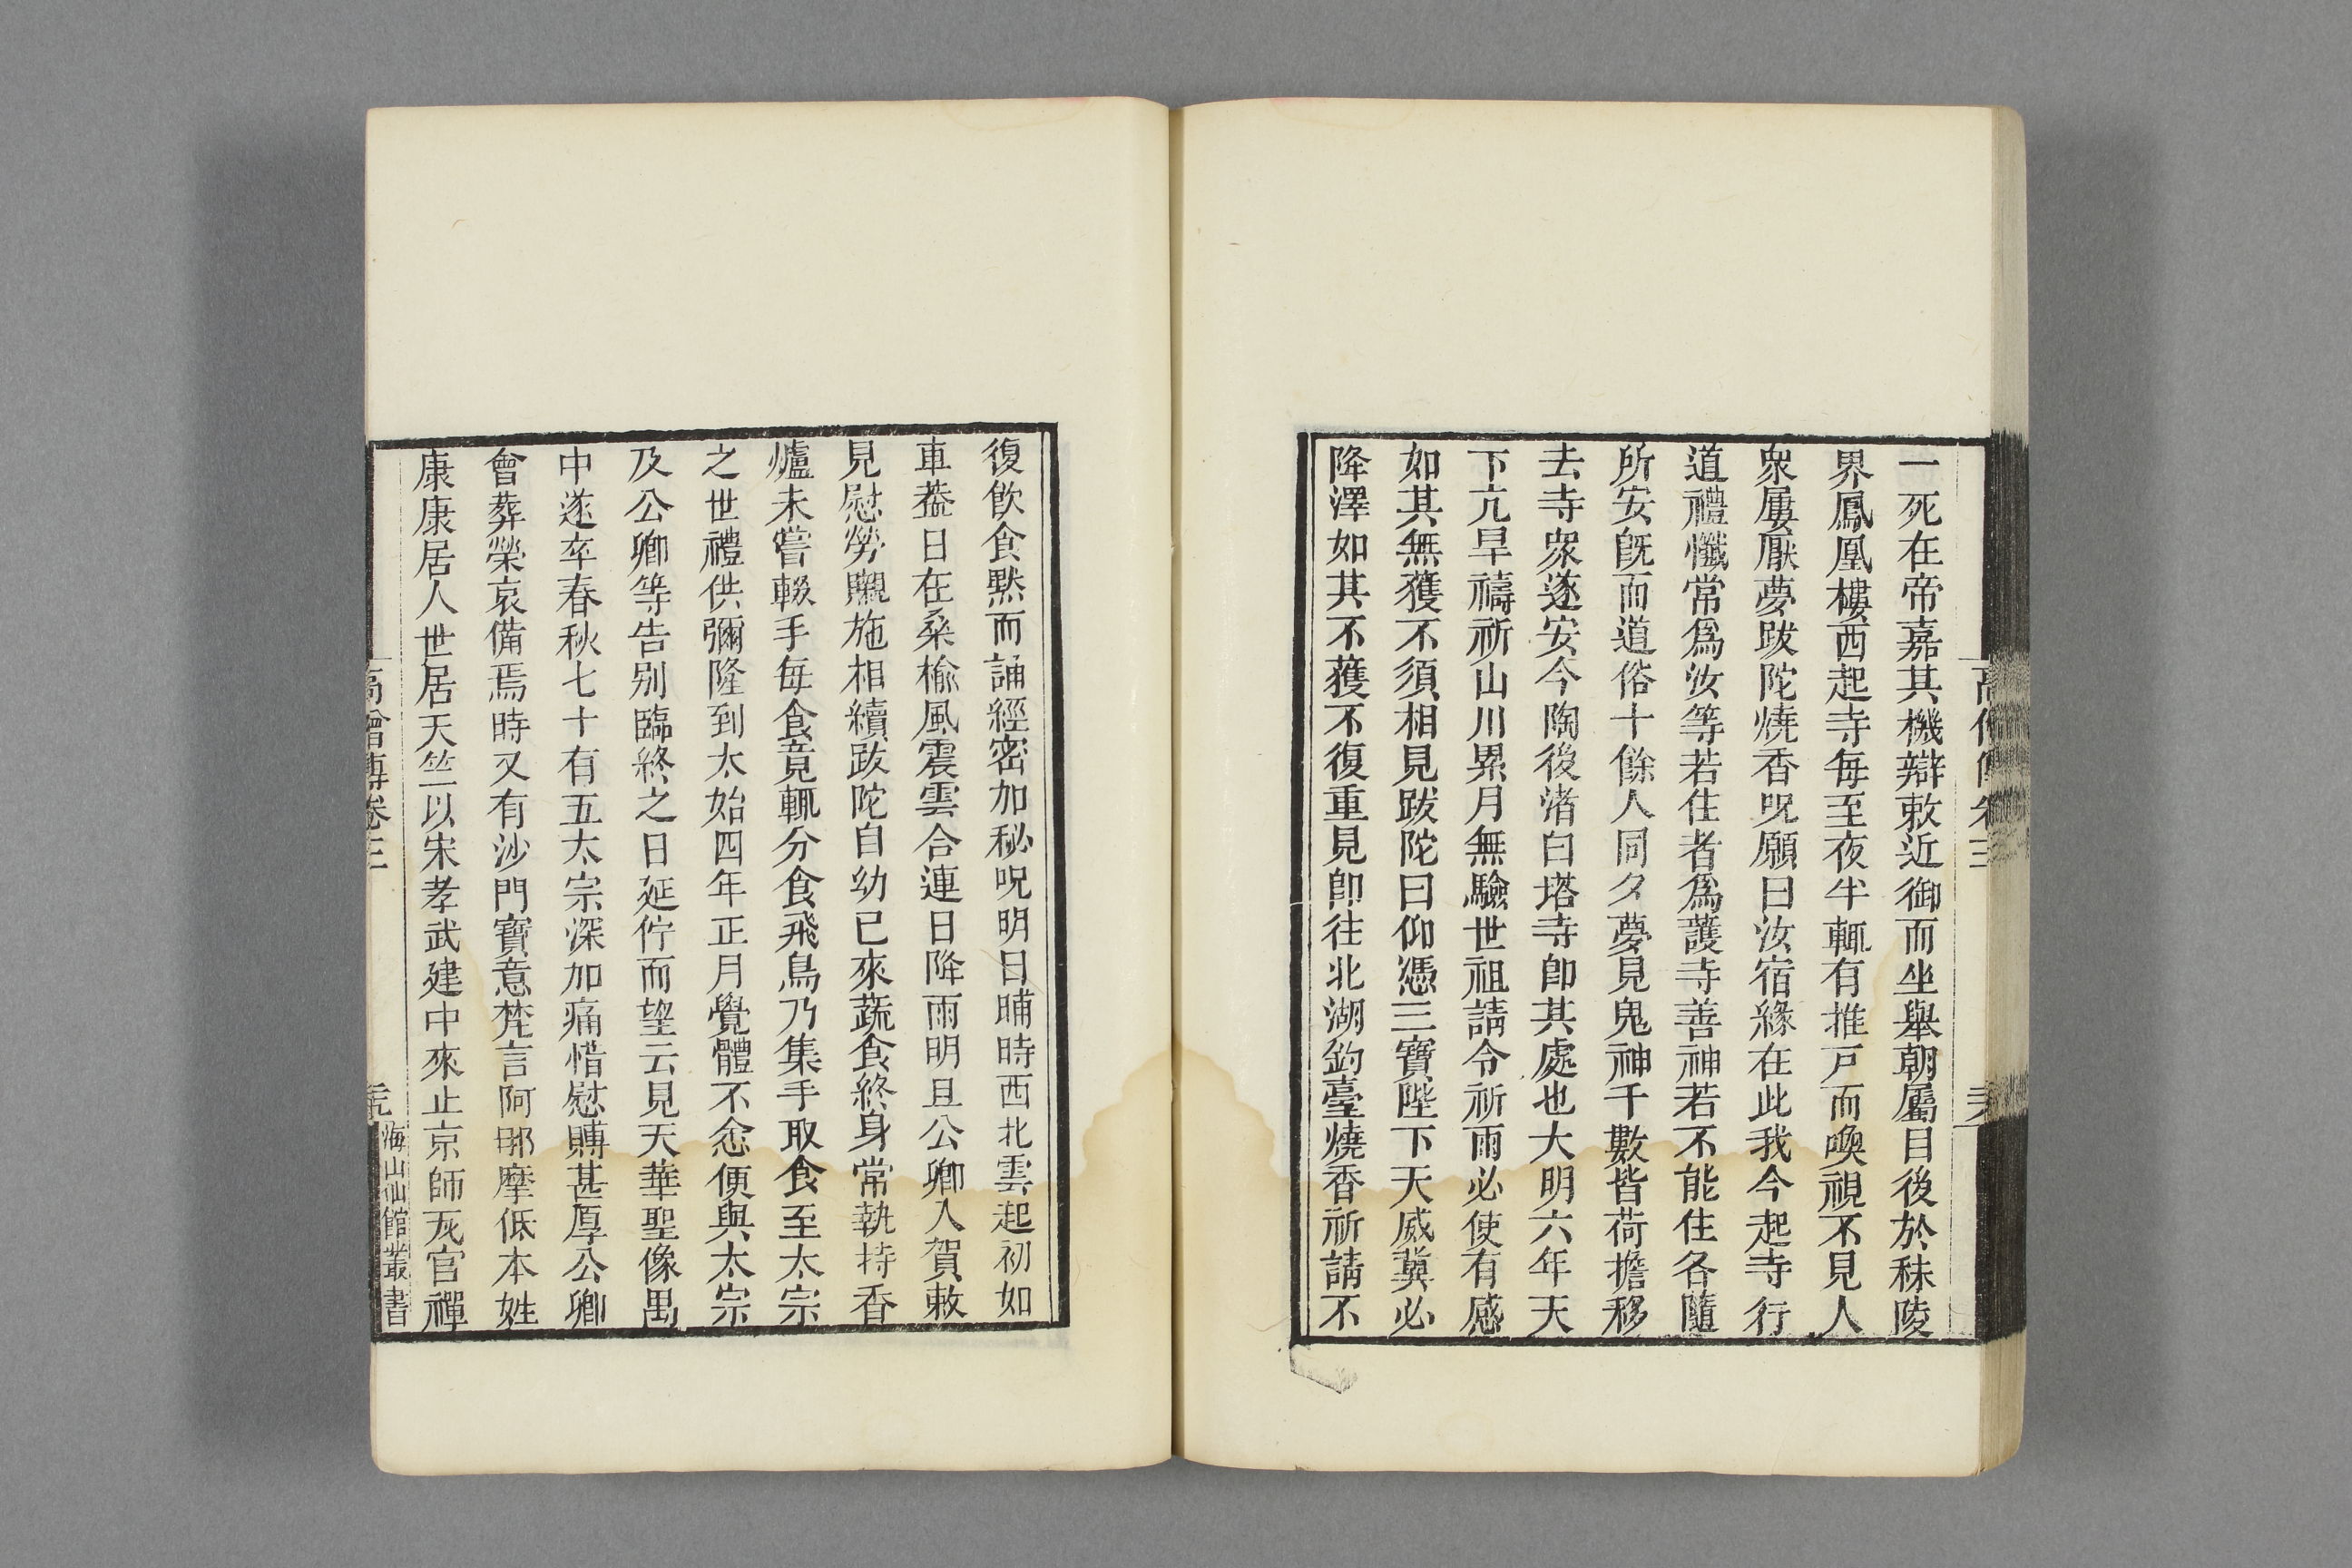 一死在帝嘉其機辯敕近御而坐舉朝屬目後於秣陵
界鳳凰樓西起寺每至夜半輒有推戸而喚視不見人
衆屢厭夢跋陀燒香呪願曰汝宿緣在此我今起寺行
道禮懺常爲汝等若住者爲護寺善神若不能住各隨
所安旣而道俗十餘人同夕夢見鬼神千數皆荷擔移
去寺衆遂安今陶後渚白塔寺卽其處也大明六年天
下亢旱禱祈山川累月無驗世祖請令祈雨必使有感
如其無獲不須相見跋陀曰仰憑三寶陛下天威冀必
降澤如其不獲不復重見卽往北湖釣臺燒香祈請不
復飲食黙而誦經密加秘呪明日晡時西北雲起初如
車葢日在桑榆風震雲合連日降雨明旦公卿入賀敕
見慰勞䞋施相續跋陀自幼已來蔬食終身常執持香
爐未嘗輟手每食竟輒分食飛鳥乃集手取食至太宗
之世禮供彌隆到太始四年正月覺體不悆便與太宗
及公卿等告别臨終之日延佇而望云見天華聖像禺
中遂卒春秋七十有五太宗深加痛惜慰賻甚厚公卿
會葬榮哀備焉時又有沙門寶意梵言阿那摩低本姓
康康居人世居天竺以宋孝武建中來止京師瓦官禪
高僧傳卷三
海山仙館叢書